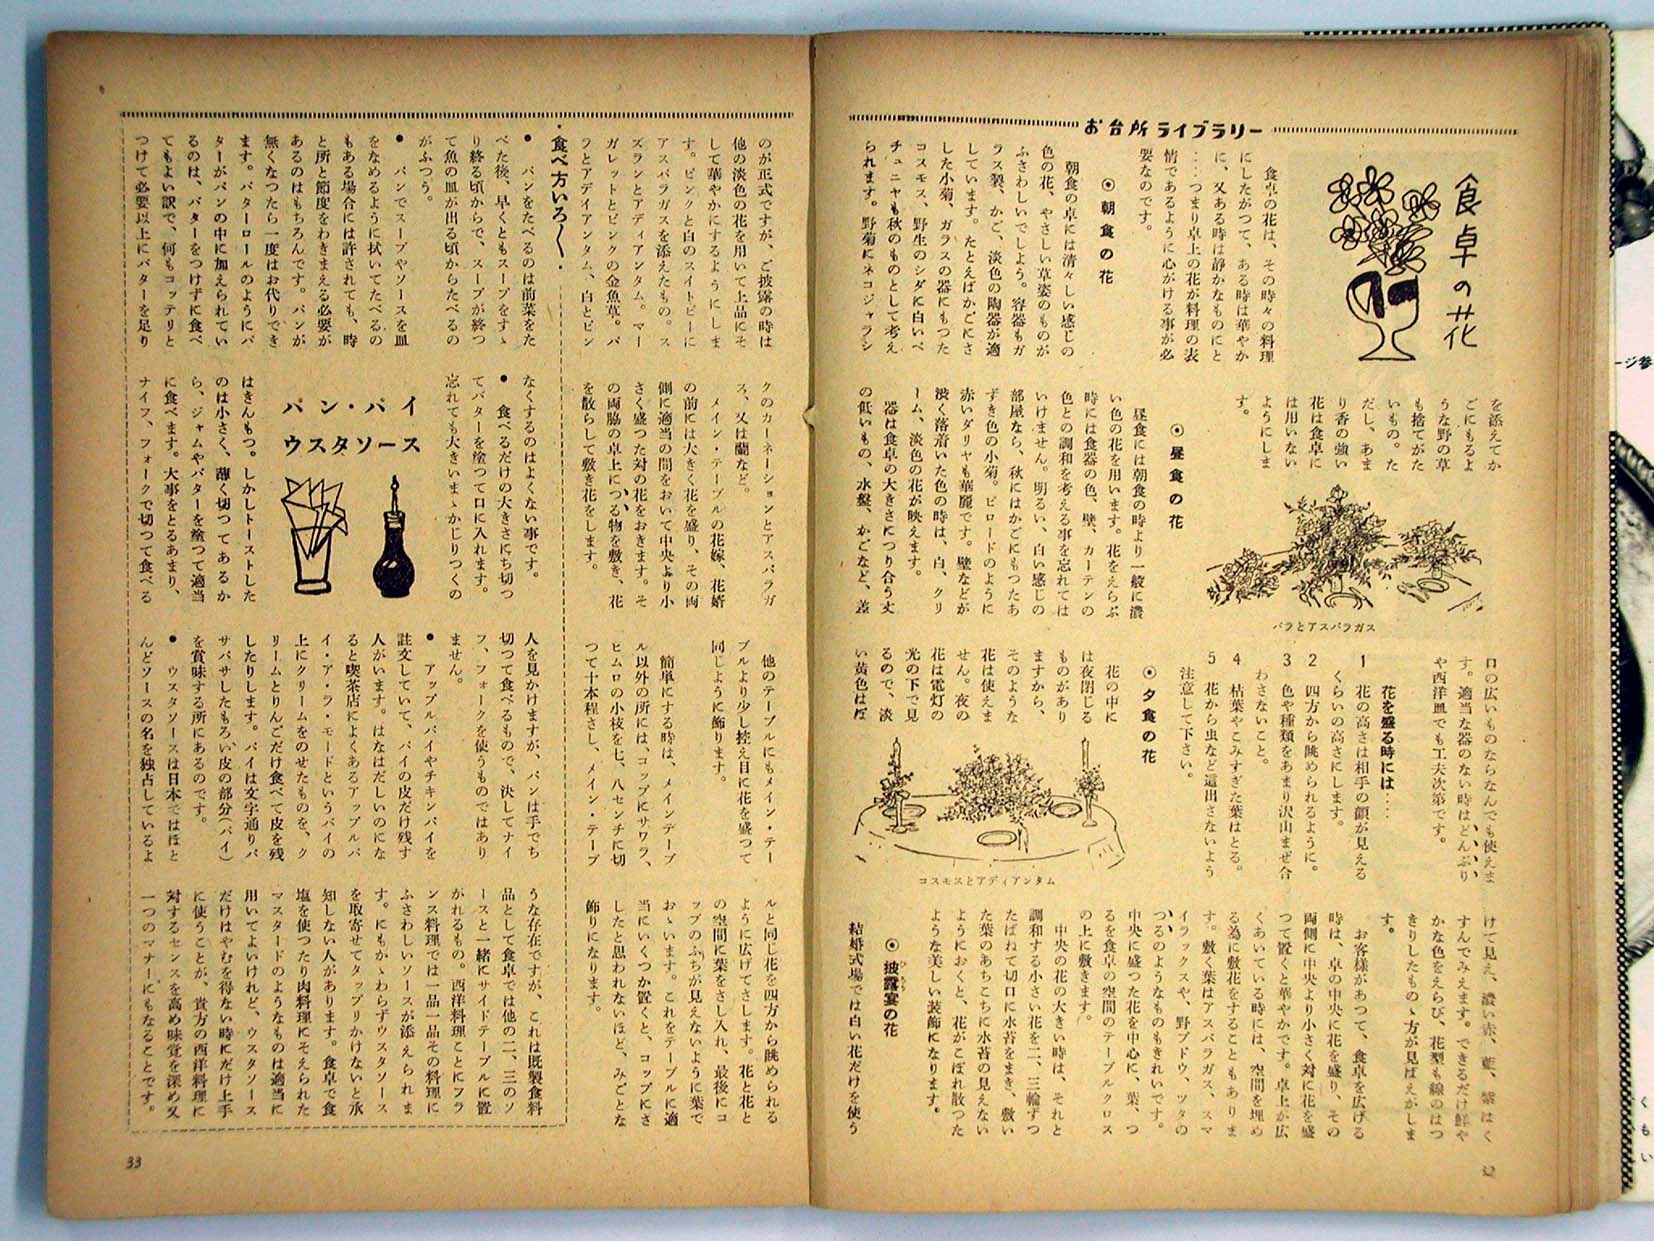 お台所ライブラリー
食卓の花
食卓の花は、その時々の料理
にしたがつて、ある時は華やか
に、又ある時は静かなものにと
…つまり卓上の花が料理の表
情であるように心がける事が必
要なのです。
◉朝食の花
朝食の卓には清々しい感じの
色の花、やさしい草姿のものが
ふさわしいでしよう。容器もガ
ラス製、かご、淡色の陶器が適
しています。たとえばかごにさ
した小菊、ガラスの器にもつた
コスモス、野生のシダに白いペ
チュニヤも秋のものとして考え
られます。野菊にネコジャラシ
を添えてか
ごにもるよ
うな野の草
も捨てがた
いもの。た
だし、あま
り香の強い
花は食卓に
は用いない
ようにしま
す。
バラとアスパラガス
◉昼食の花
昼食には朝食の時より一般に濃
い色の花を用います。花をえらぶ
時には食器の色、壁、カーテンの
色との調和を考える事を忘れては
いけません。明るい、白い感じの
部屋なら、秋にはかごにもつたあ
ずき色の小菊。ビロードのように
赤いダリヤも華麗です。壁などが
渋く落着いた色の時は、白、クリ
ーム、淡色の花が映えます。
器は食卓の大きさにつり合う丈
の低いもの、水盤、かごなど、蓋
口の広いものならなんでも使えま
す。適当な器のない時はどんぶり
や西洋皿でも工夫次第です。
花を盛る時には…
1 花の高さは相手の顔が見える
くらいの高さにします。
2 四方から眺められるように。
3 色や種類をあまり沢山まぜ合
わさないこと。
4 枯葉やこみすぎた葉はとる。
5 花から虫など這出さないよう
注意して下さい。
◉夕食の花
花の中に
は夜閉じる
ものがあり
ますから、
そのような
花は使えま
せん。夜の
花は電灯の
光の下で見
るので、淡
い黄色はぼ
コスモスとアディアンタム
けて見え、濃い赤、藍、紫はく
すんでみえます。できるだけ鮮や
かな色をえらび、花型も線のはつ
きりしたものゝ方が見ばえがしま
す。
お客様があつて、食卓を広げる
時は、卓の中央に花を盛り、その
両側に中央より小さく対に花を盛
つて置くと華やかです。卓上が広
くあいている時には、空間を埋め
る為に敷花をすることもありま
す。敷く葉はアスパラガス、スマ
イラックスや、野ブドウ、ツタの
つるのようなものもきれいです。
中央に盛つた花を中心に、葉、つ
るを食卓の空間のテーブルクロス
の上に敷きます。
中央の花の大きい時は、それと
調和する小さい花を二、三輪ずつ
たばねて切口に水苔をまき、敷い
た葉のあちこちに水苔の見えない
ようにおくと、花がこぼれ散つた
ような美しい装飾になります。
◉披露宴の花
ひろう
結婚式場では白い花だけを使う
32
のが正式ですが、ご披露の時は
他の淡色の花を用いて上品にそ
して華やかにするようにしま
す。ピンクと白のスイトピーに
アスパラガスを添えたもの。ス
ズランとアディアンタム。マー
ガレットとピンクの金魚草。バ
ラとアディアンタム、白とピン
クのカーネーションとアスパラガ
ス、又は蘭など。
メイン・テーブルの花嫁、花婿
の前には大きく花を盛り、その両
側に適当の間をおいて中央より小
さく盛つた対の花をおきます。そ
の両脇の卓上につる物を敷き、花
を散らして敷き花をします。
他のテーブルにもメイン・テー
ブルより少し控え目に花を盛つて
同じように飾ります。
簡単にする時は、メインテーブ
ル以外の所には、コップにサワラ、
ヒムロの小枝を七、八センチに切
つて十本程さし、メイン・テーブ
ルと同じ花を四方から眺められる
ように広げてさします。花と花と
の空間に葉をさし入れ、最後にコ
ップのふちが見えないように葉で
おゝいます。これをテーブルに適
当にいくつか置くと、コップにさ
したと思われないほど、みごとな
飾りになります。
・食べ方いろ〱・
● パンをたべるのは前菜をた
べた後、早くともスープをすゝ
り終る頃からで、スープが終つ
て魚の皿が出る頃からたべるの
がふつう。
● パンでスープやソースを皿
をなめるように拭いてたべるの
もある場合には許されても、時
と所と節度をわきまえる必要が
あるのはもちろんです。パンが
無くなつたら一度はお代りでき
ます。バターロールのようにバ
ターがパンの中に加えられてい
るのは、バターをつけずに食べ
てもよい訳で、何もコッテリと
つけて必要以上にバターを足り
なくするのはよくない事です。
● 食べるだけの大きさにち切つ
てバターを塗つて口に入れます。
忘れても大きいまゝかじりつくの
パン・パイ
ウスタソース
はきんもつ。しかしトーストした
のは小さく、薄く切つてあるか
ら、ジャムやバターを塗つて適当
に食べます。大事をとるあまり、
ナイフ、フォークで切つて食べる
人を見かけますが、パンは手でち
切つて食べるもので、決してナイ
フ、フォークを使うものではあり
ません。
● アップルパイやチキンパイを
註文していて、パイの皮だけ残す
人がいます。はなはだしいのにな
ると喫茶店によくあるアップルパ
イ・ア・ラ・モードというパイの
上にクリームをのせたものを、ク
リームとりんごだけ食べて皮を残
したりします。パイは文字通りパ
サパサしたもろい皮の部分(パイ)
を賞味する所にあるのです。
● ウスタソースは日本ではほと
んどソースの名を独占しているよ
うな存在ですが、これは既製食料
品として食卓では他の二、三のソ
ースと一緒にサイドテーブルに置
かれるもの。西洋料理ことにフラ
ンス料理では一品一品その料理に
ふさわしいソースが添えられま
す。にもかゝわらずウスタソース
を取寄せてタップリかけないと承
知しない人があります。食卓で食
塩を使つたり肉料理にそえられた
マスタードのようなものは適当に
用いてよいけれど、ウスタソース
だけはやむを得ない時にだけ上手
に使うことが、貴方の西洋料理に
対するセンスを高め味覚を深め又
一つのマナーにもなることです。
33